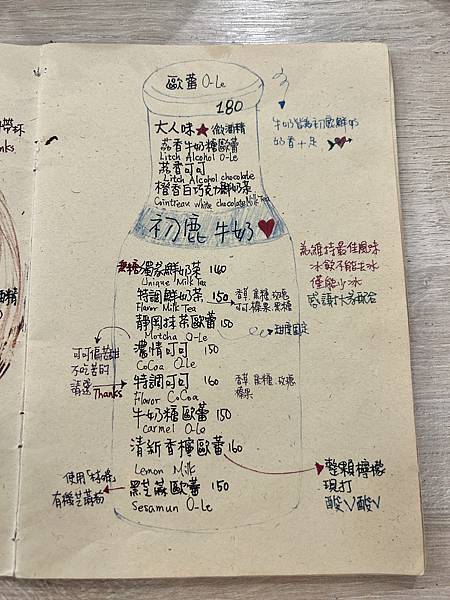 歐蕾 O-Le
180
大人味★微酒精
荔香牛奶糖歐蕾
Litch Alcohol O-Le
荔香可可
Litch Alcohol chocolate
橙香白巧克力鮮奶茶
Cointreau white chocolate Milk Tea
初鹿 牛奶
牛奶皆為初鹿鮮奶
奶香十足
為維持最佳風味
冰飲不能去冰
僅能少冰
感謝大家配合
無糖 獨芬鮮奶茶 140
Unique Milk Tea
特調鮮奶茶 150
Flavor Milk Tea
香草 焦糖 玫瑰
可可 榛果 黑糖
靜岡抹茶歐蕾 150
Motcha O-Le
甜度固定
濃情可可 150
CoCoa O-Le
可可偏苦甜
不吃苦的
請選 Thanks
特調可可 160
Flavor CoCoa
香草 焦糖 玫瑰
榛果
牛奶糖歐蕾 150
Carmel O-Le
清新香檬歐蕾 160
Lemon Milk
整顆檸檬
現打
酸V酸V
黑芝麻歐蕾 150
Sesamun O-Le
有機芝麻粉
帶杯
nks
酒精